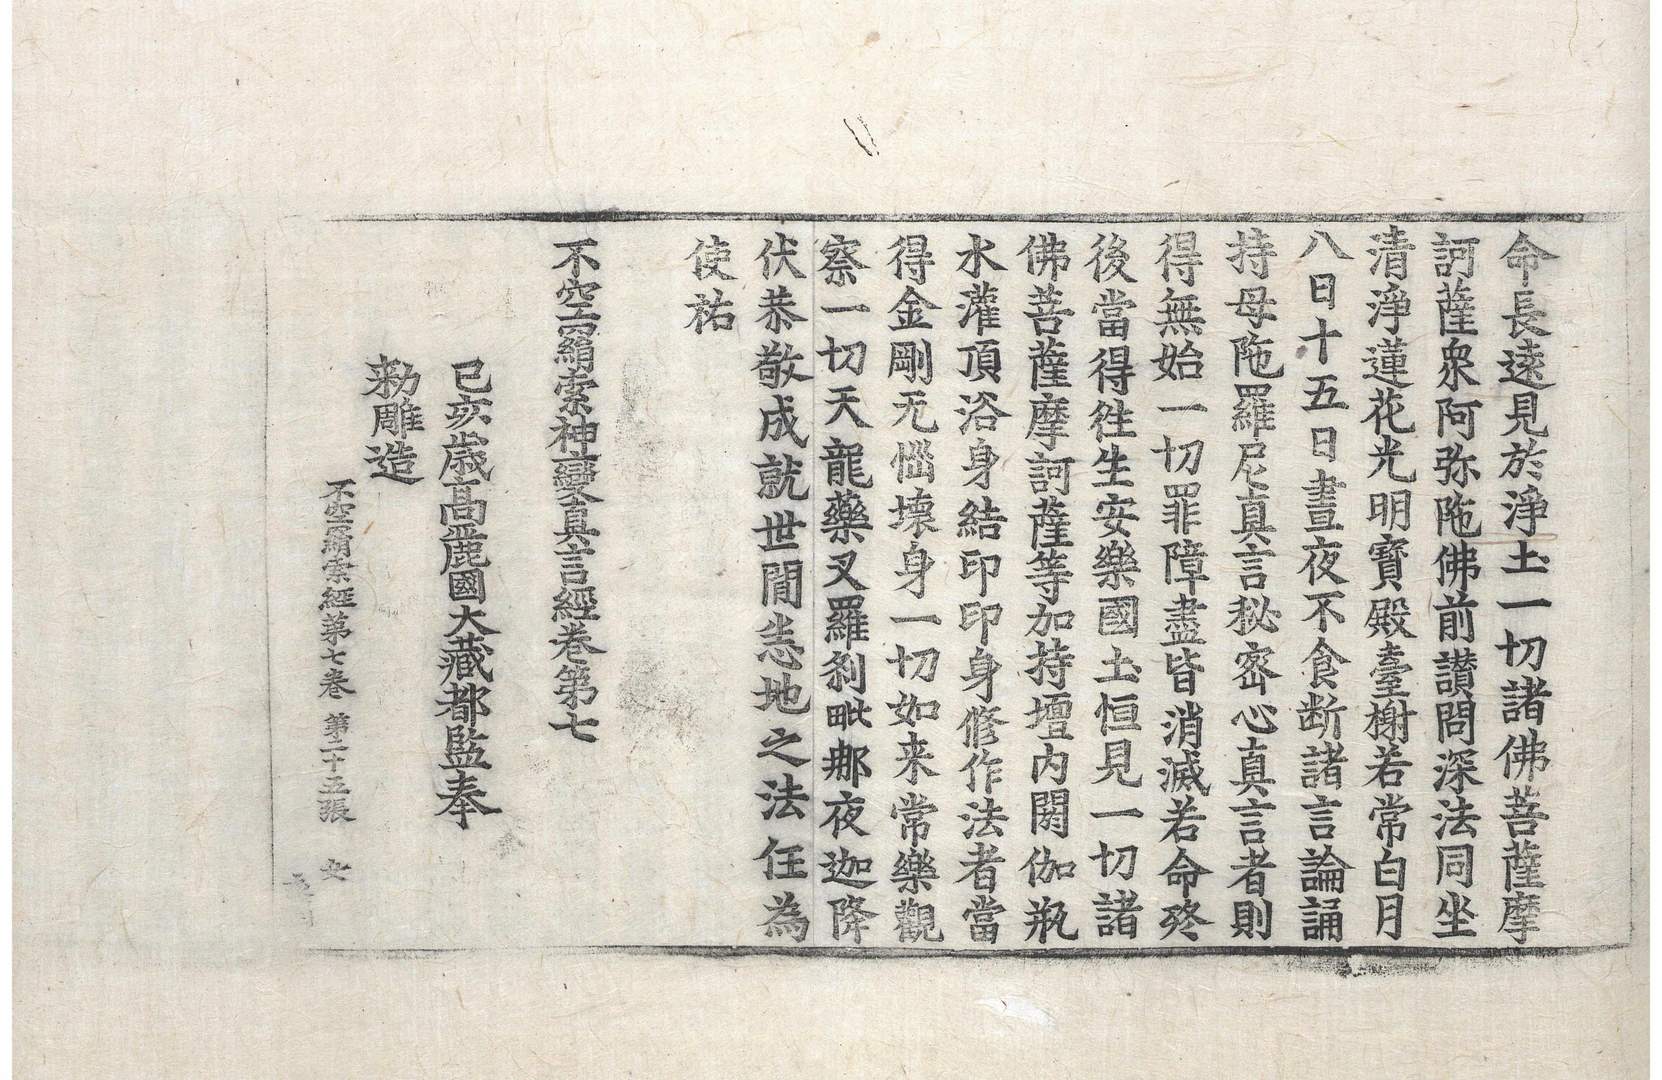 命長遠見於淨土一切諸佛菩薩摩
訶薩衆阿弥陁佛前讃問深法同坐
清淨蓮花光明寶殿臺榭若常白月
八日十五日晝夜不食断諸言論誦
持母陁羅尼真言秘密心真言者則
得無始一切罪障盡皆消滅若命終
後當得往生安樂國土恒見一切諸
佛菩薩摩訶薩等加持壇内閼伽瓶
水灌頂浴身結印印身修作法者當
得金剛无惱壞身一切如来常樂觀
察一切天龍藥叉羅刹毗那夜迦降
伏恭敬成就世閒悉地之法任為
使祐
不空羂索神變真言經卷第七
己亥歲高麗國大藏都監奉
勑雕造
不空羂索經第七卷 第二十五張